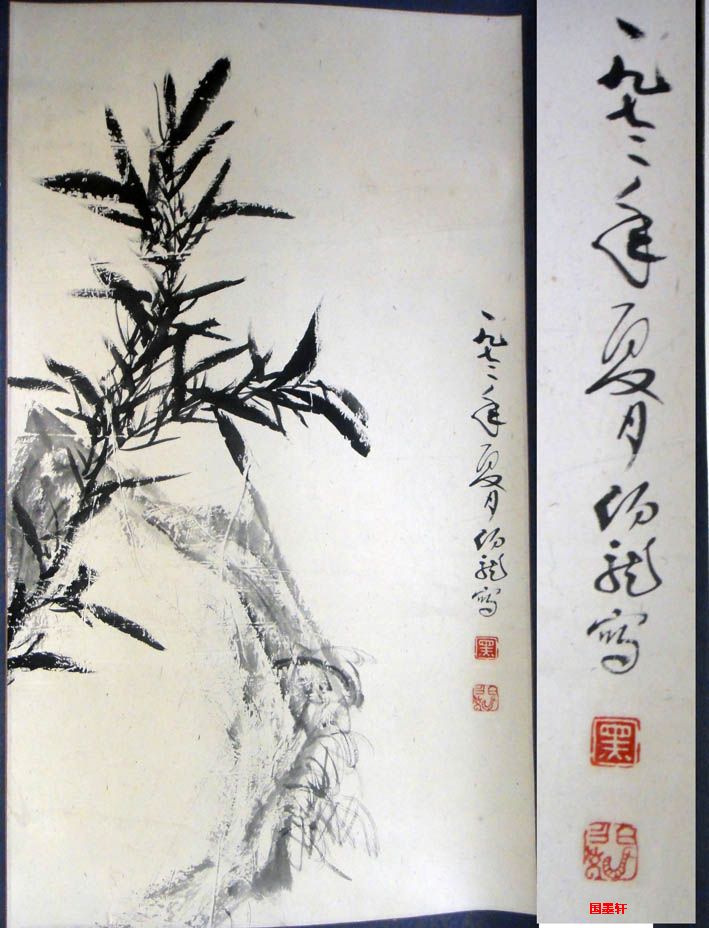 一九七二年夏月伯龍寫
黑
一九七二年夏月伯龍寫
黑
国墨轩